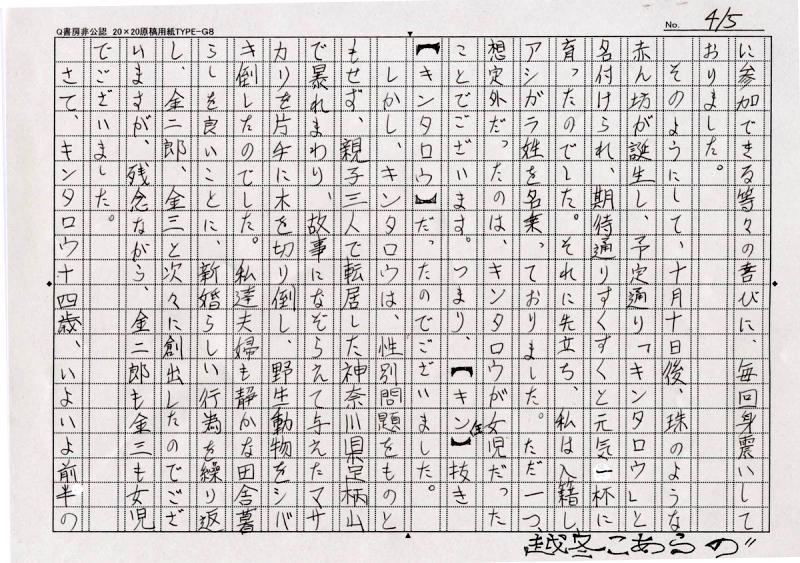 Q書房非公認 20×20原稿用紙TYPE-G8
No. 4/5
に参加できる等々の喜びに、毎回身震いして
おりました。
そのようにして、十月十日後、珠のような
赤ん坊が誕生し、予定通り「キンタロウ」と
名付けられ、期待通りすくすくと元気一杯に
育ったのでした。それに先立ち、私は入籍し、
アシガラ姓を名乗っておりました。ただ一つ、
想定外だったのは、キンタロウが女児だった
ことでございます。つまり、【キン】抜き
【キンタロウ】だったのでございました。
しかし、キンタロウは、性別問題をものと
もせず、親子三人で転居した神奈川県足柄山
で暴れまわり、故事になぞらえて与えたマサ
カリを片手に木を切り倒し、野生動物をシバ
キ倒したのでした。私達夫婦も静かな田舎暮
らしを良いことに、新婚らしい行為を繰り返
し、金二郎、金三と次々に創出したのでござ
いますが、残念ながら、金二郎も金三も女児
でございました。
さて、キンタロウ十四歳、いよいよ前半の
越冬こあらの"